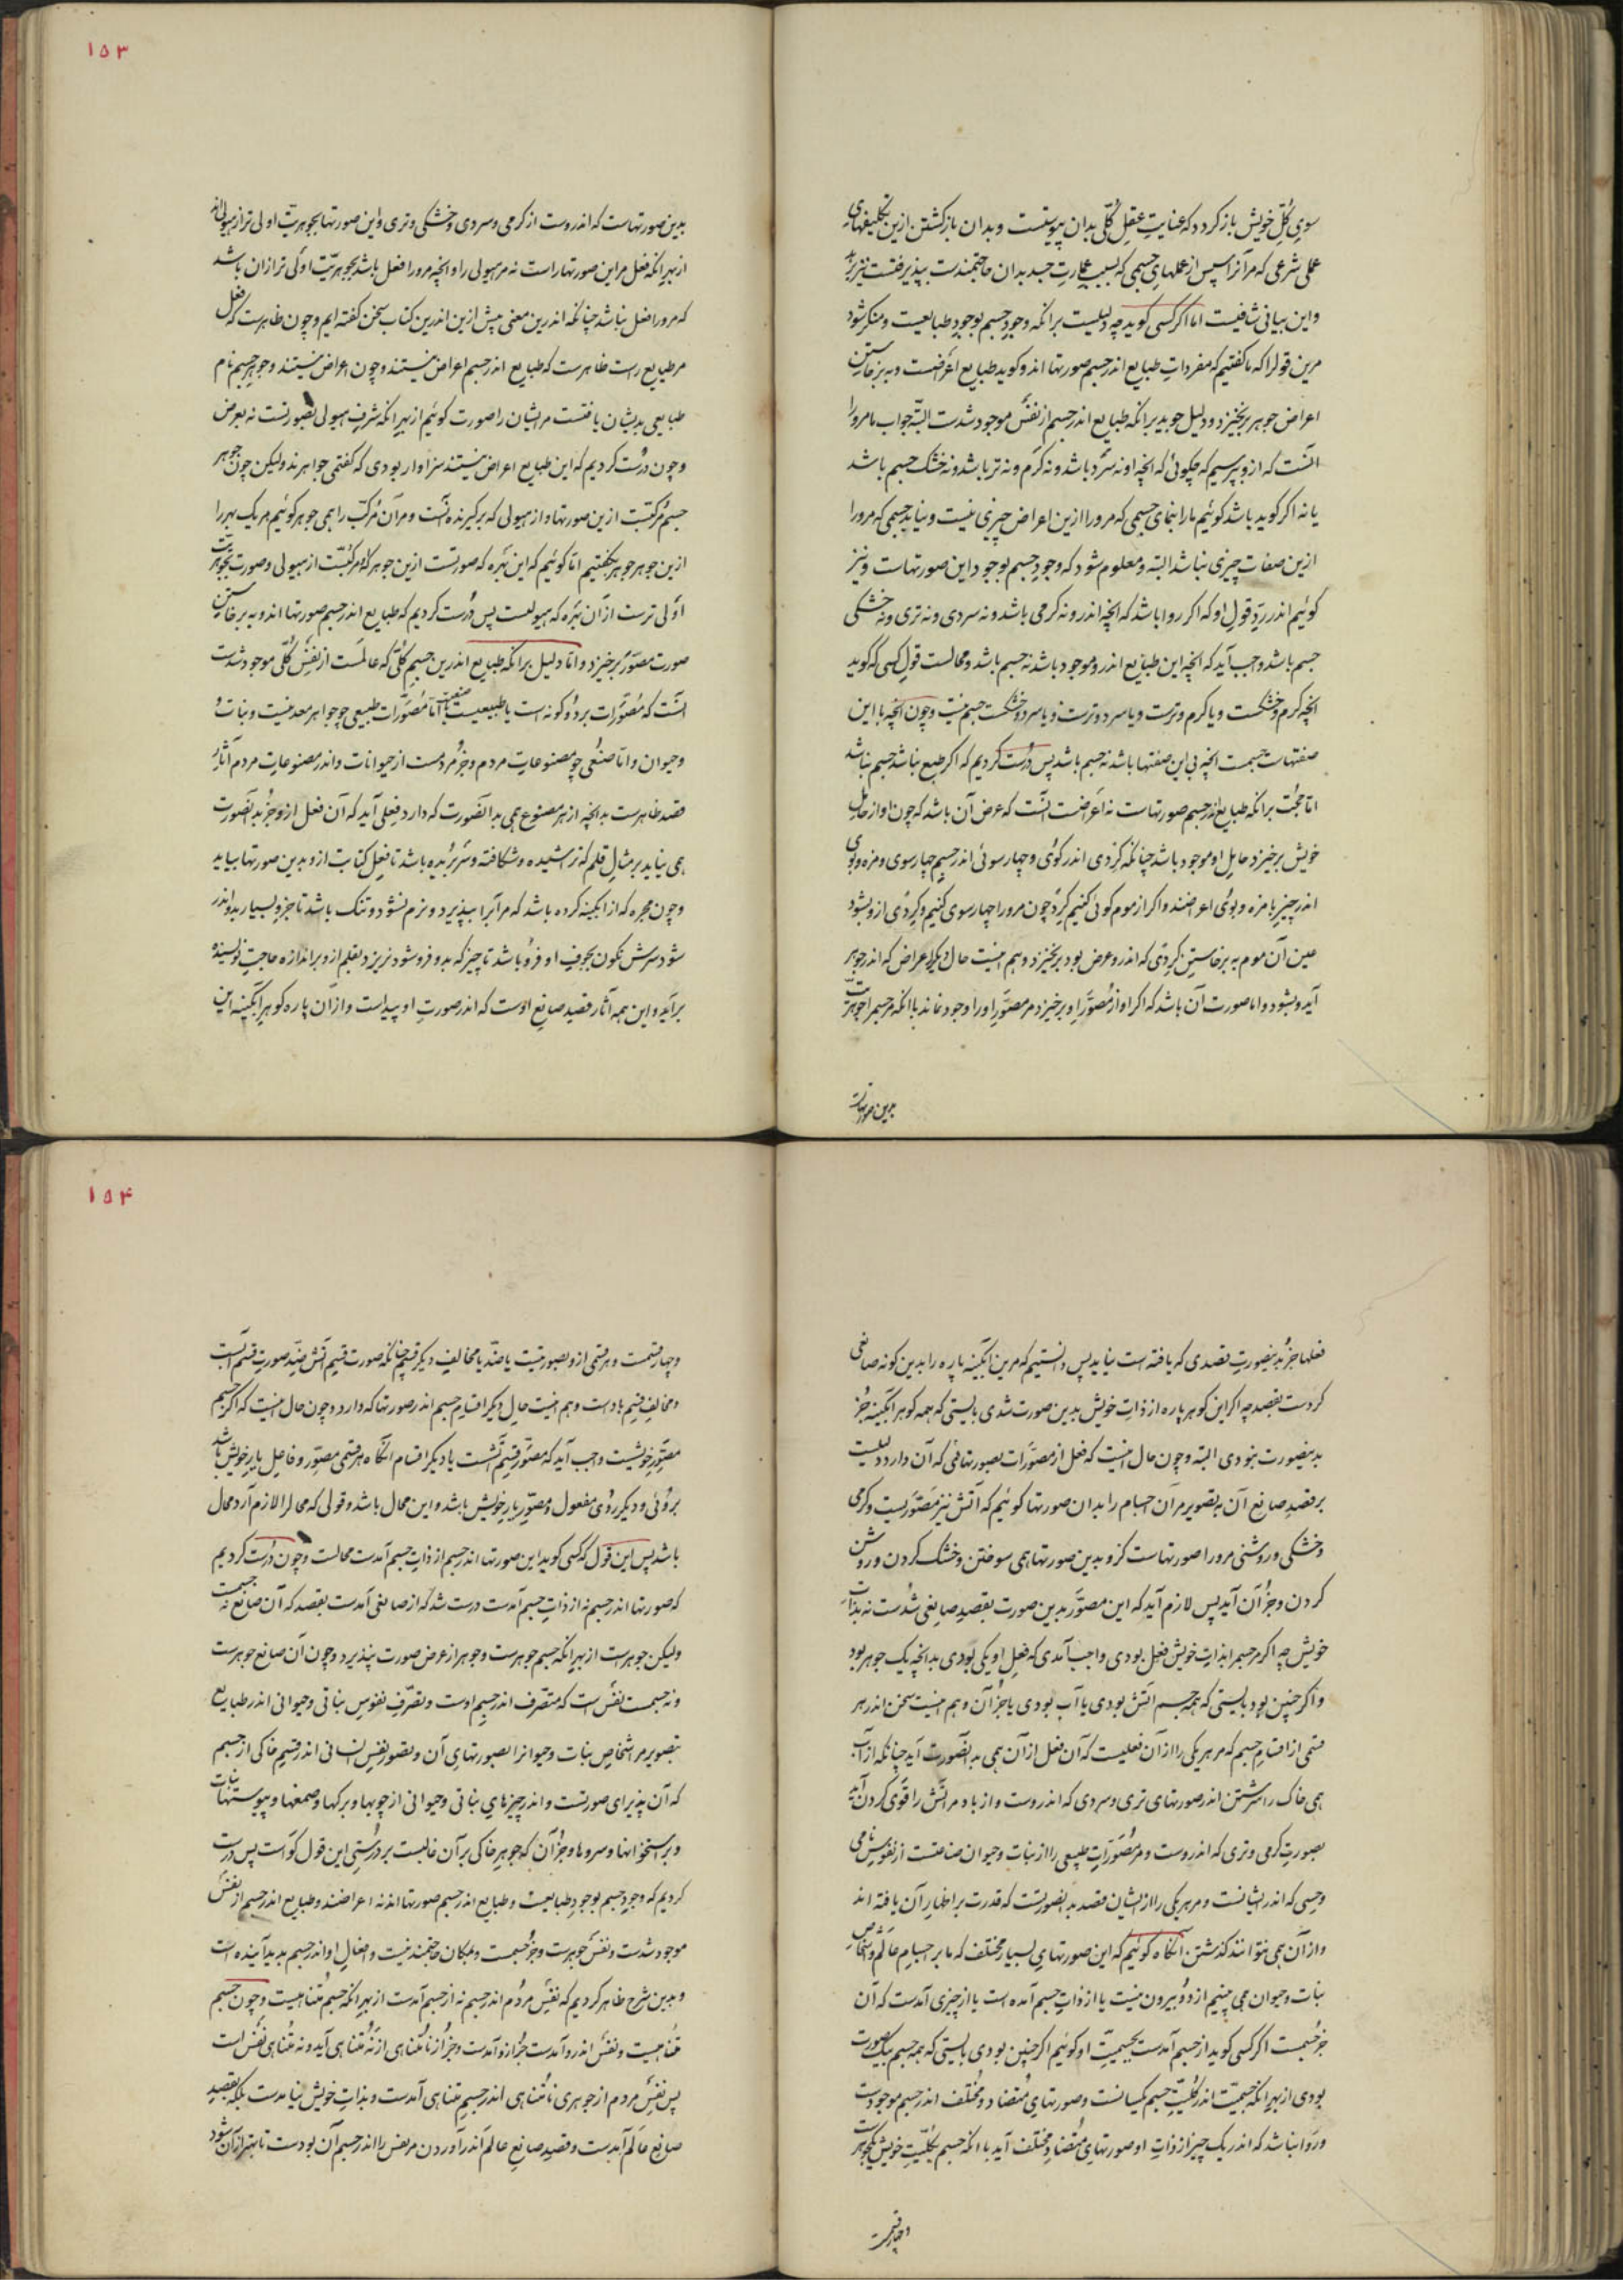 سوی کل خویش باز کردد که عنایت عقل کلی بدان پیوستست وبدان باز کشتن ازین تکلیفهای
عملی شرعی که مر آنرا سپس از عملهای جسمی که بسبب عمارت جسد بدان حاجتمندست بپذیرفتست نیز برهد
واین بیانی شافیست اما اکر کسی کوید چه دلیلست برانکه وجود جسم بوجود طبایعست ومنکر شود
مرین قول را که ما کفتیم که مفردات طبایع اندر جسم صورتها اند و کوید طبایع اعراضست و به برخاستن
اعراض جوهر برنخیزد و دلیل جوید برانکه طبایع اندر جسم از نفس موجود شدست البته جواب ما مرورا
آنست که ازو بپرسیم که چکوئی که آنچه او نه سرد باشد و نه کرم و نه تر باشد و نه خشک جسم باشد
یا نه اکر کوید باشد کوئیم ما را بنمای جسمی که مرورا ازین اعراض چیزی نیست و نیابد جسمی که مرورا
ازین صفات چیزی نباشد البته و معلوم شود که وجود جسم بوجود این صورتهاست و نیز
کوئیم اندر رد قول او که اکر روا باشد که آنچه اندرو نه کرمی باشد و نه سردی و نه تری و نه خشکی
جسم باشد واجب آید که آنچه این طبایع اندرو موجود باشد نه جسم باشد و محالست قول کسی که کوید
آنچه کرم و خشکست و یا کرم و ترست و یا سرد و ترست و یا سرد و خشکست جسم نیست و چون آنچه با این
صفتهاست جسمست آنچه بی این صفتها باشد نه جسم باشد پس درست کردیم که اکر طبع نباشد جسم نباشد
اما حجت برانکه طبایع اندر جسم صورتهاست نه اعراضست آنست که عرض آن باشد که چون او از حامل
خویش برخیزد حامل او موجود باشد چنانکه کردی اندر کوئی و چهارسوئی اندر جسم چهارسوی و مزه و بوی
اندر چیز با مزه و بوئی اعراضند و اکر از موم کوئی کنیم کرد چون مرورا چهارسوی کنیم و کردی ازو بشود
عین آن موم به برخاستن کردی که اندرو عرض بود برنخیزد و هم اینست حال دیکر اعراض که اندر جوهر
آید و بشود و اما صورت آن باشد که اکر او از مصور او برخیزد مر مصور او را وجود نماند با آنکه مر جسم را جوهریت
بدین صورتهاست
۱۵۳
بدین صورتهاست که اندروست از کرمی و سردی و خشکی و تری و این صورتها بجوهریت اولی تر از هیولی اند
از بهر آنکه فعل مر این صورتها راست نه مر هیولی را و آنچه مرورا فعل باشد بجوهریت اولی تر ازان باشد
که مرورا فعل نباشد چنانکه اندرین معنی پیش ازین اندرین کتاب سخن کفته ایم و چون ظاهرست که فعل
مر طبایع راست ظاهرست که طبایع اندر جسم اعراض نیستند و چون اعراض نیستند و جوهر جسم نام
طبایعی بدیشان یافتست مریشان را صورت کوئیم از بهر آنکه شرف هیولی بصورتست نه بعرض
و چون درست کردیم که این طبایع اعراض نیستند سزاوار بودی که کفتمی جواهرند ولیکن چون جوهر
جسم مرکبست ازین صورتها و از هیولی که برکیرنده آنست و مر آن مرکب را همی جوهر کوئیم هر یک بهر را
ازین جوهر جوهر نکفتیم اما کوئیم که این بهره که صورتست ازین جوهر که مرکبست از هیولی و صورت بجوهریت
اولی ترست از آن بهره که هیولیست پس درست کردیم که طبایع اندر جسم صورتها اند و به برخاستن
صورت مصور برخیزد و اما دلیل برانکه طبایع اندرین جسم کلی که عالمست از نفس کلی موجود شدست
آنست که مصورات بر دو کونه است یا طبیعیست یا صنعتی اما مصورات طبیعی چو جواهر معدنیست و نبات و
حیوان و اما صنعتی چو مصنوعات مردم و جز مردمست از حیوانات و اندر مصنوعات مردم آثار
قصد ظاهرست بدانچه از هر مصنوع همی بدان صورت که دارد فعلی آید که آن فعل ازو جز بدان صورت
همی نیاید بر مثال قلم که تراشیده و شکافته و سر بریده باشد تا فعل کتابت ازو بدین صورتها بیاید
و چون محبره که از آبکینه کرده باشد که مر آب را بپذیرد و نرم نشود و تنک باشد تا جزو بسیار بدو اندر
شود سرش نکون بجوف او فرو باشد تا چیز که بدو فرو شود نریزد بقلم ازو بر اندازه حاجت نویسنده
برآید و این همه آثار قصد صانع اوست که اندر صورت او پیداست و از آن پاره کوهر آبکینه این
فعلها جز بدین صورت قصدی که یافته است نیاید پس دانستیم که مرین آبکینه پاره را بدین کونه صانعی
کردست بقصد چه اکر این کوهر پاره از ذات خویش بدین صورت شدی بایستی که همه کوهر آبکینه جز
بدین صورت نبودی البته و چون حال اینست که فعل از مصورات بصورتهائی که آن دارد دلیلست
بر قصد صانع آن به تصویر مر آن اجسام را بدان صورتها کوئیم که آتش نیز مصوریست و کرمی
و خشکی و روشنی مرورا صورتهاست کزو بدین صورتها همی سوختن و خشک کردن و روشن
کردن و جز آن آید پس لازم آید که این مصور بدین صورت بقصد صانعی شدست نه بذات
خویش چه اکر مر جسم را بذات خویش فعل بودی واجب آمدی که فعل او یکی بودی بدانچه یک جوهر بود
و اکر چنین بود بایستی که همه جسم آتش بودی یا آب بودی یا جز آن و هم اینست سخن اندر هر
قسمی از اقسام جسم که مر هر یکی را از آن فعلیست که آن فعل از آن همی بدان صورت آید چنانکه از آب
همی خاک را سرشتن اندر صورتهای تری و سردی که اندروست و از باد مر آتش را قوی کردن آید
بصورت کرمی و تری که اندروست و مر مصورات طبیعی را از نبات و حیوان صناعتست از نفوس نامی
و حسی که اندر ایشانست و مر هر یکی را از ایشان قصد بدان صورتست که قدرت بر اظهار آن یافته اند
و از آن همی نتوانند کذشتن آنکاه کوئیم که این صورتهای بسیار مختلف که ما بر اجسام عالم و اشخاص
نبات و حیوان همی بینیم از دو بیرون نیست یا از ذات جسم آمده است یا از چیزی آمدست که آن
جز جسمست اکر کسی کوید از جسم آمدست بجسمیت او کوئیم اکر چنین بودی بایستی که همه جسم بیک صورت
بودی از بهر آنکه جسمیت اندر کلیت جسم یکسانست و صورتهای متضاد و مختلف اندر جسم موجودست
و روا نباشد که اندر یک چیز از ذات او صورتهای متضاد و مختلف آید با آنکه جسم بکلیت خویش یک جوهرست
و چهار قسمت
۱۵۴
و چهار قسمت و هر قسمی ازو بصورتیست یا ضد یا مخالف دیکر قسم چنانکه صورت قسم آتش ضد صورت قسم آبست
و مخالف قسم بادست و هم اینست حال دیکر اقسام جسم اندر صورتها که دارد و چون حال اینست که اکر جسم
مصور خویشست واجب آید که مصور قسم آتشست یا دیکر اقسام آنکاه هر قسمی مصور و فاعل یار خویش باشد
بروئی و دیکر روی مفعول و مصور یار خویش باشد و این محال باشد و قولی که محال را لازم آرد محال
باشد پس این قول که کسی کوید این صورتها اندر جسم از ذات جسم آمدست محالست و چون درست کردیم
که صورتها اندر جسم نه از ذات جسم آمدست درست شد که از صانعی آمدست بقصد که آن صانع نه جسمست
ولیکن جوهرست از بهر آنکه جسم جوهرست و جوهر از عرض صورت نپذیرد و چون آن صانع جوهرست
و نه جسمست نفس است که متصرف اندر جسم اوست و تصرف نفوس نباتی و حیوانی اندر طبایع
بتصویر مر اشخاص نبات و حیوان را بصورتهای آن و تصویر نفس انسانی اندر قسم خاکی از جسم
که آن پذیرای صورتست و اندر چیزهای نباتی و حیوانی از چوبها و برکها و صمغها و پوستهای نبات
و بر استخوانها و سروها و جز آن که جوهر خاکی بر آن غالبست بر درستی این قول کواست پس درست
کردیم که وجود جسم بوجود طبایعست و طبایع اندر جسم صورتها اند نه اعراضند و طبایع اندر جسم از نفس
موجود شدست و نفس جوهرست و جز جسمست و بمکان حاجتمند نیست و افعال او اندر جسم پدید آینده است
و بدین شرح ظاهر کردیم که نفس مردم اندر جسم نه از جسم آمدست از بهر آنکه جسم متناهیست و چون جسم
متناهیست و نفس اندرو آمدست جز ازو آمدست و جز از نامتناهی از نه متناهی آید و نه متناهی نفس است
پس نفس مردم از جوهری نامتناهی اندر جسم متناهی آمدست و بذات خویش نیامدست بلکه بقصد
صانع عالم آمدست و قصد صانع عالم اندر آوردن مر نفس را اندر جسم آن بودست تا بهتر از آن شود